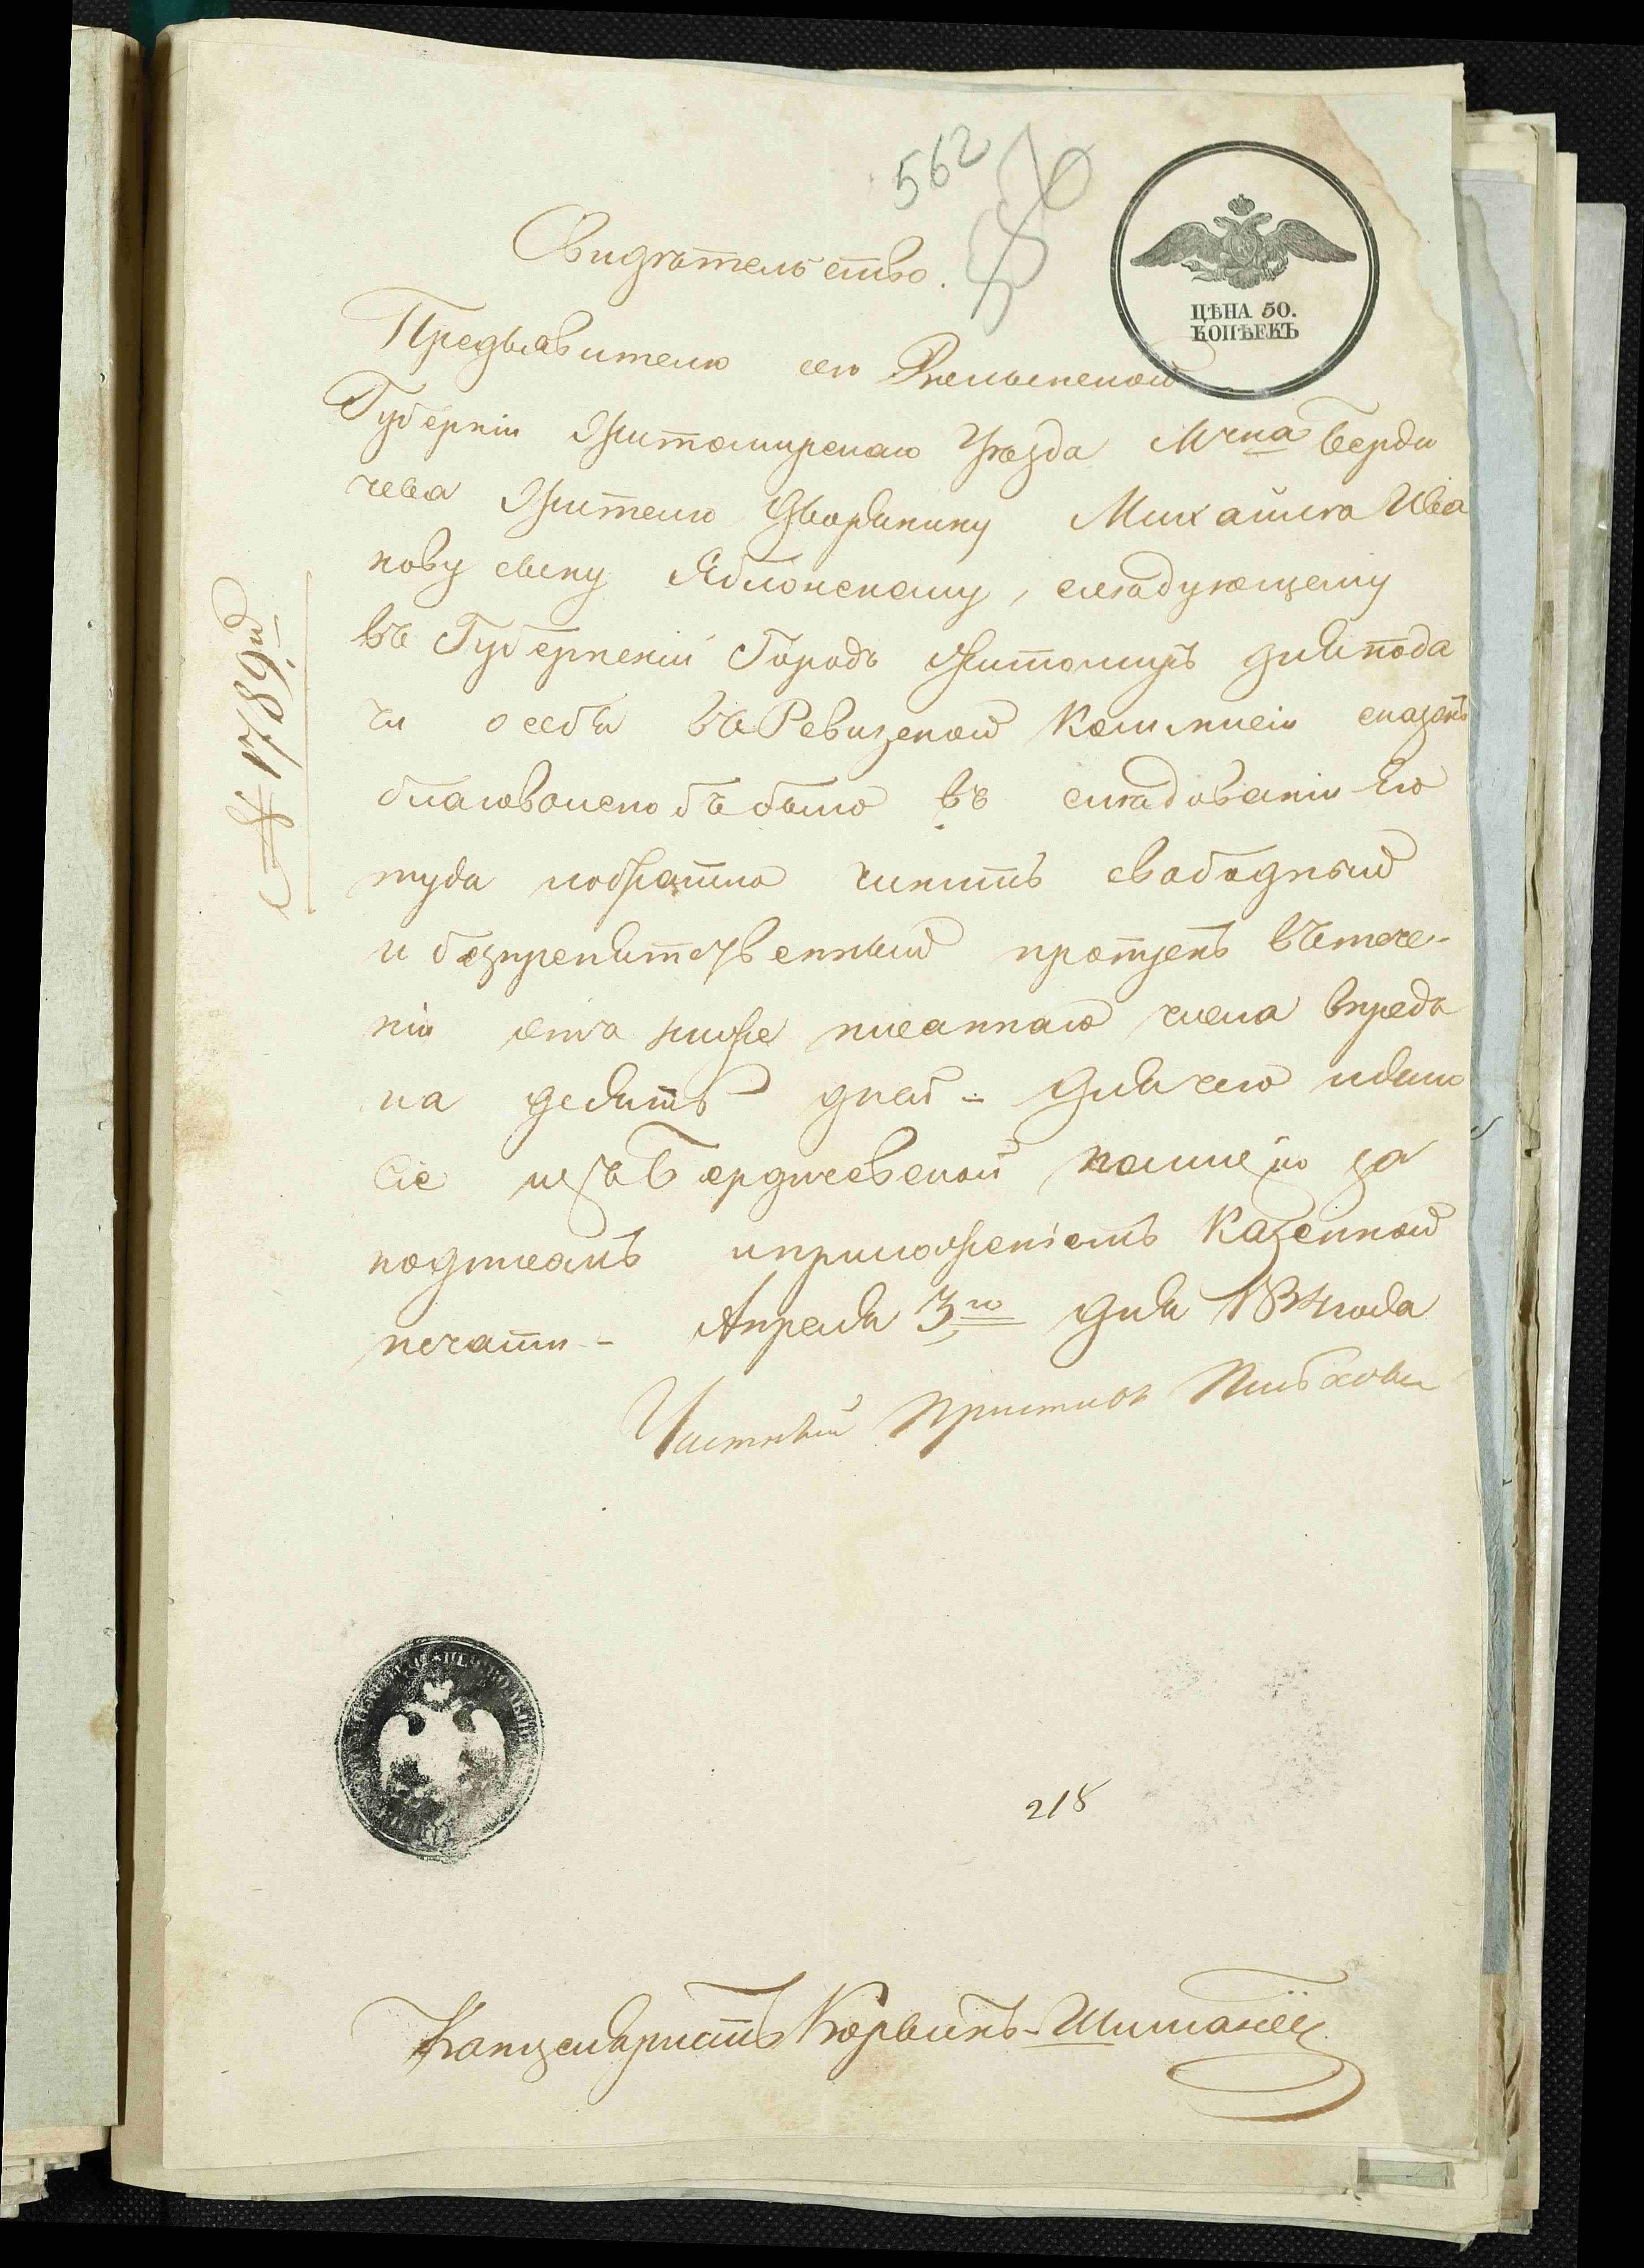 562
ЦѢНА 50.
КОПѢЕКЪ
Свидѣтельство.
Предъявителю сего Волынской
Губерніи Житомирскаго Уѣзда Мчка Берди
чева Жителю Дворянину Михайлѣ Ива
нову сыну Яблонскому, слѣдующему
въ Губернскій Городъ Житомиръ для пода
чи о себѣ въ Ревизской Коммисіи сказокъ
благоволено бъ было въ слѣдованіи Его
туда и обратно чинить свободный
и безпрепятственный пропускъ въ тече-
ніи отъ ниже писаннаго числа впредь
на девять дней - для чего и дано
сіе изъ Бердичевской полиціи за
подписомъ и приложеніемъ Казенной
печати - Апреля 3го дня 1834 года
Частный Приставъ
№ 1789й
218
Канцеляристъ Корвинъ-Шиманск